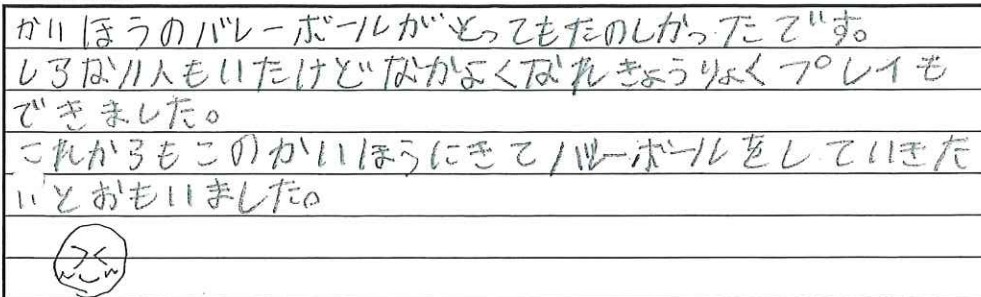 かいほうのバレーボールがとってもたのしかったです。
しらない人もいたけどなかよくなれきょうりょくプレイも
できました。
これからもこのかいほうにきてバレーボールをしていきた
いとおもいました。